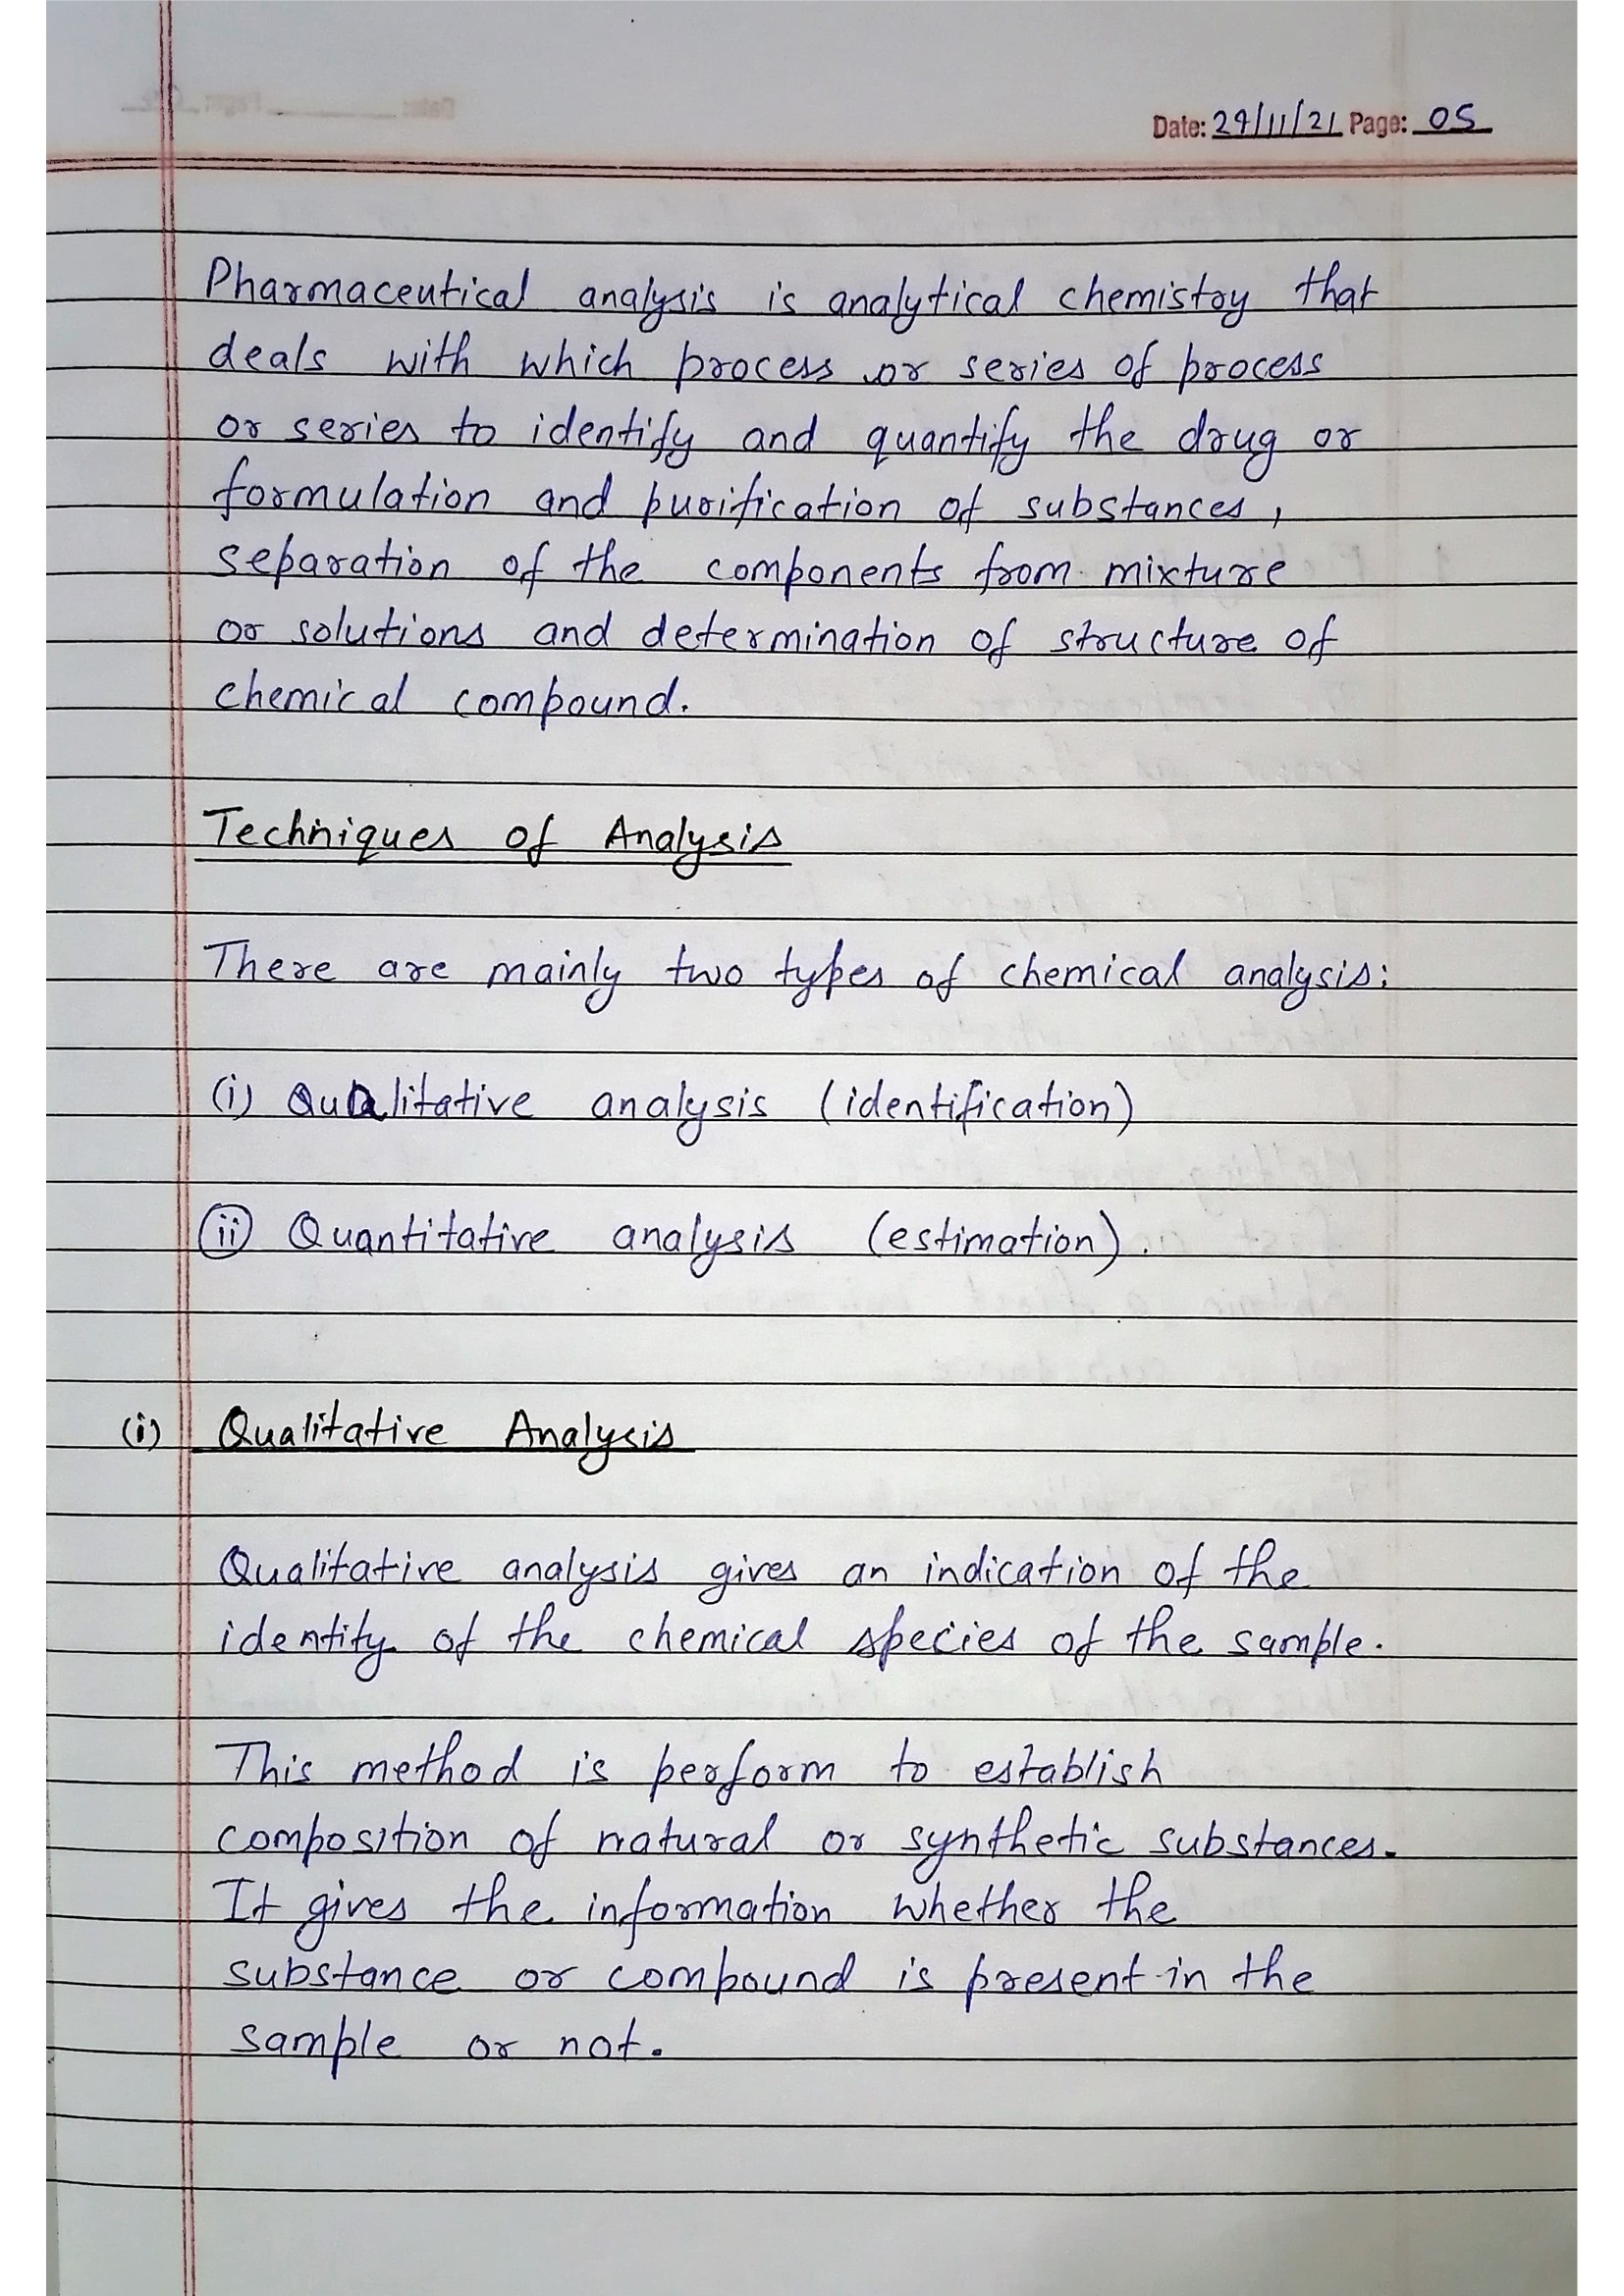 Date: 29/11/21 Page: 05
Pharmaceutical analysis is analytical chemistry that
deals with which process or series of process
or series to identify and quantify the drug or
formulation and purification of substances,
separation of the components from mixture
or solutions and determination of structure of
chemical compound.
Techniques of Analysis
There are mainly two types of chemical analysis:
(i) Qualitative analysis (identification)
(ii) Quantitative analysis (estimation).
(i) Qualitative Analysis
Qualitative analysis gives an indication of the
identity of the chemical species of the sample.
This method is perform to establish
composition of natural or synthetic substances.
It gives the information whether the
substance or compound is present in the
sample or not.